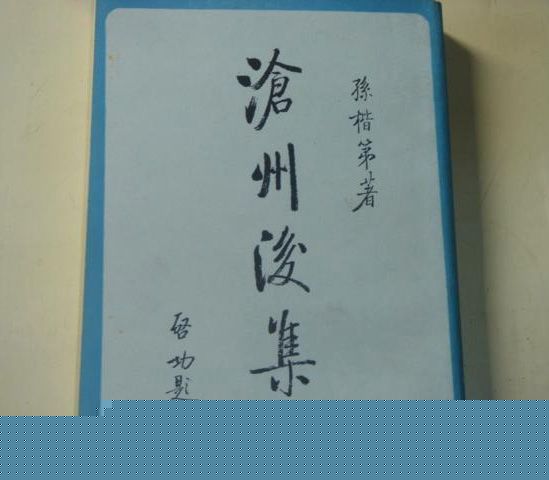 孫楷第著
滄州後集
啓功題